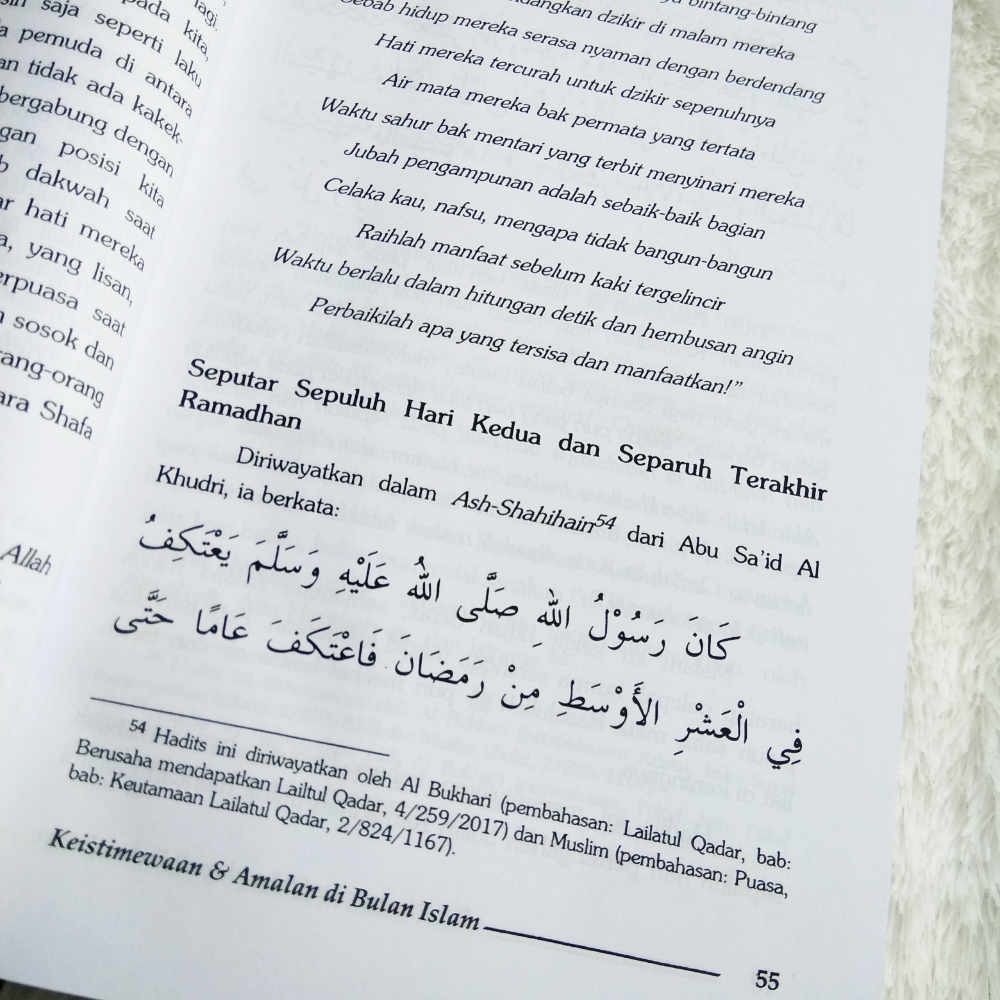 lagi.
pada kita,
saja seperti laku
pemuda di antara
tidak ada kakek-
bergabung dengan
posisi kita
dakwah saat
hati mereka
yang lisan,
saat
sosok dan
Shafa
Allah
bintang-bintang
dzikir di malam mereka
Sebab hidup mereka serasa nyaman dengan berdendang
Hati mereka tercurah untuk dzikir sepenuhnya
Air mata mereka bak permata yang tertata
Waktu sahur bak mentari yang terbit menyinari mereka
Jubah pengampunan adalah sebaik-baik bagian
Celaka kau, nafsu, mengapa tidak bangun-bangun
Raihlah manfaat sebelum kaki tergelincir
Waktu berlalu dalam hitungan detik dan hembusan angin
Perbaikilah apa yang tersisa dan manfaatkan!”
Seputar Sepuluh Hari Kedua dan Separuh Terakhir
Ramadhan
Diriwayatkan dalam Ash-Shahihain54 dari Abu Sa’id Al
Khudri, ia berkata:
كَانَ رَسُوْلُ اللهِ صَلَّى اللهُ عَلَيْهِ وَسَلَّمَ يَعْتَكِفُ
فِي الْعَشْرِ الأَوْسَطِ مِنْ رَمَضَانَ فَاعْتَكَفَ عَامًا حَتَّى
54 Hadits ini diriwayatkan oleh Al Bukhari (pembahasan: Lailatul Qadar, bab:
Berusaha mendapatkan Lailtul Qadar, 4/259/2017) dan Muslim (pembahasan: Puasa,
bab: Keutamaan Lailatul Qadar, 2/824/1167).
Keistimewaan & Amalan di Bulan Islam
55